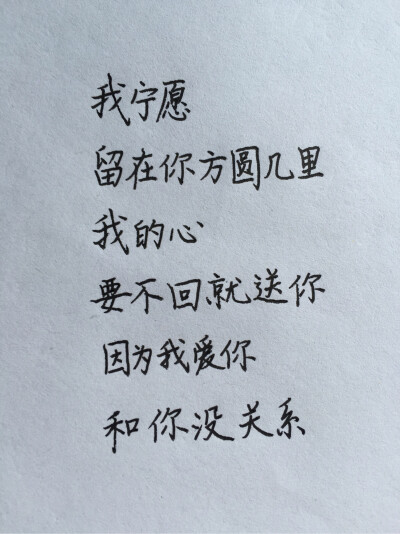 我宁愿
留在你方圆几里
我的心
要不回就送你
因为我爱你
和你没关系